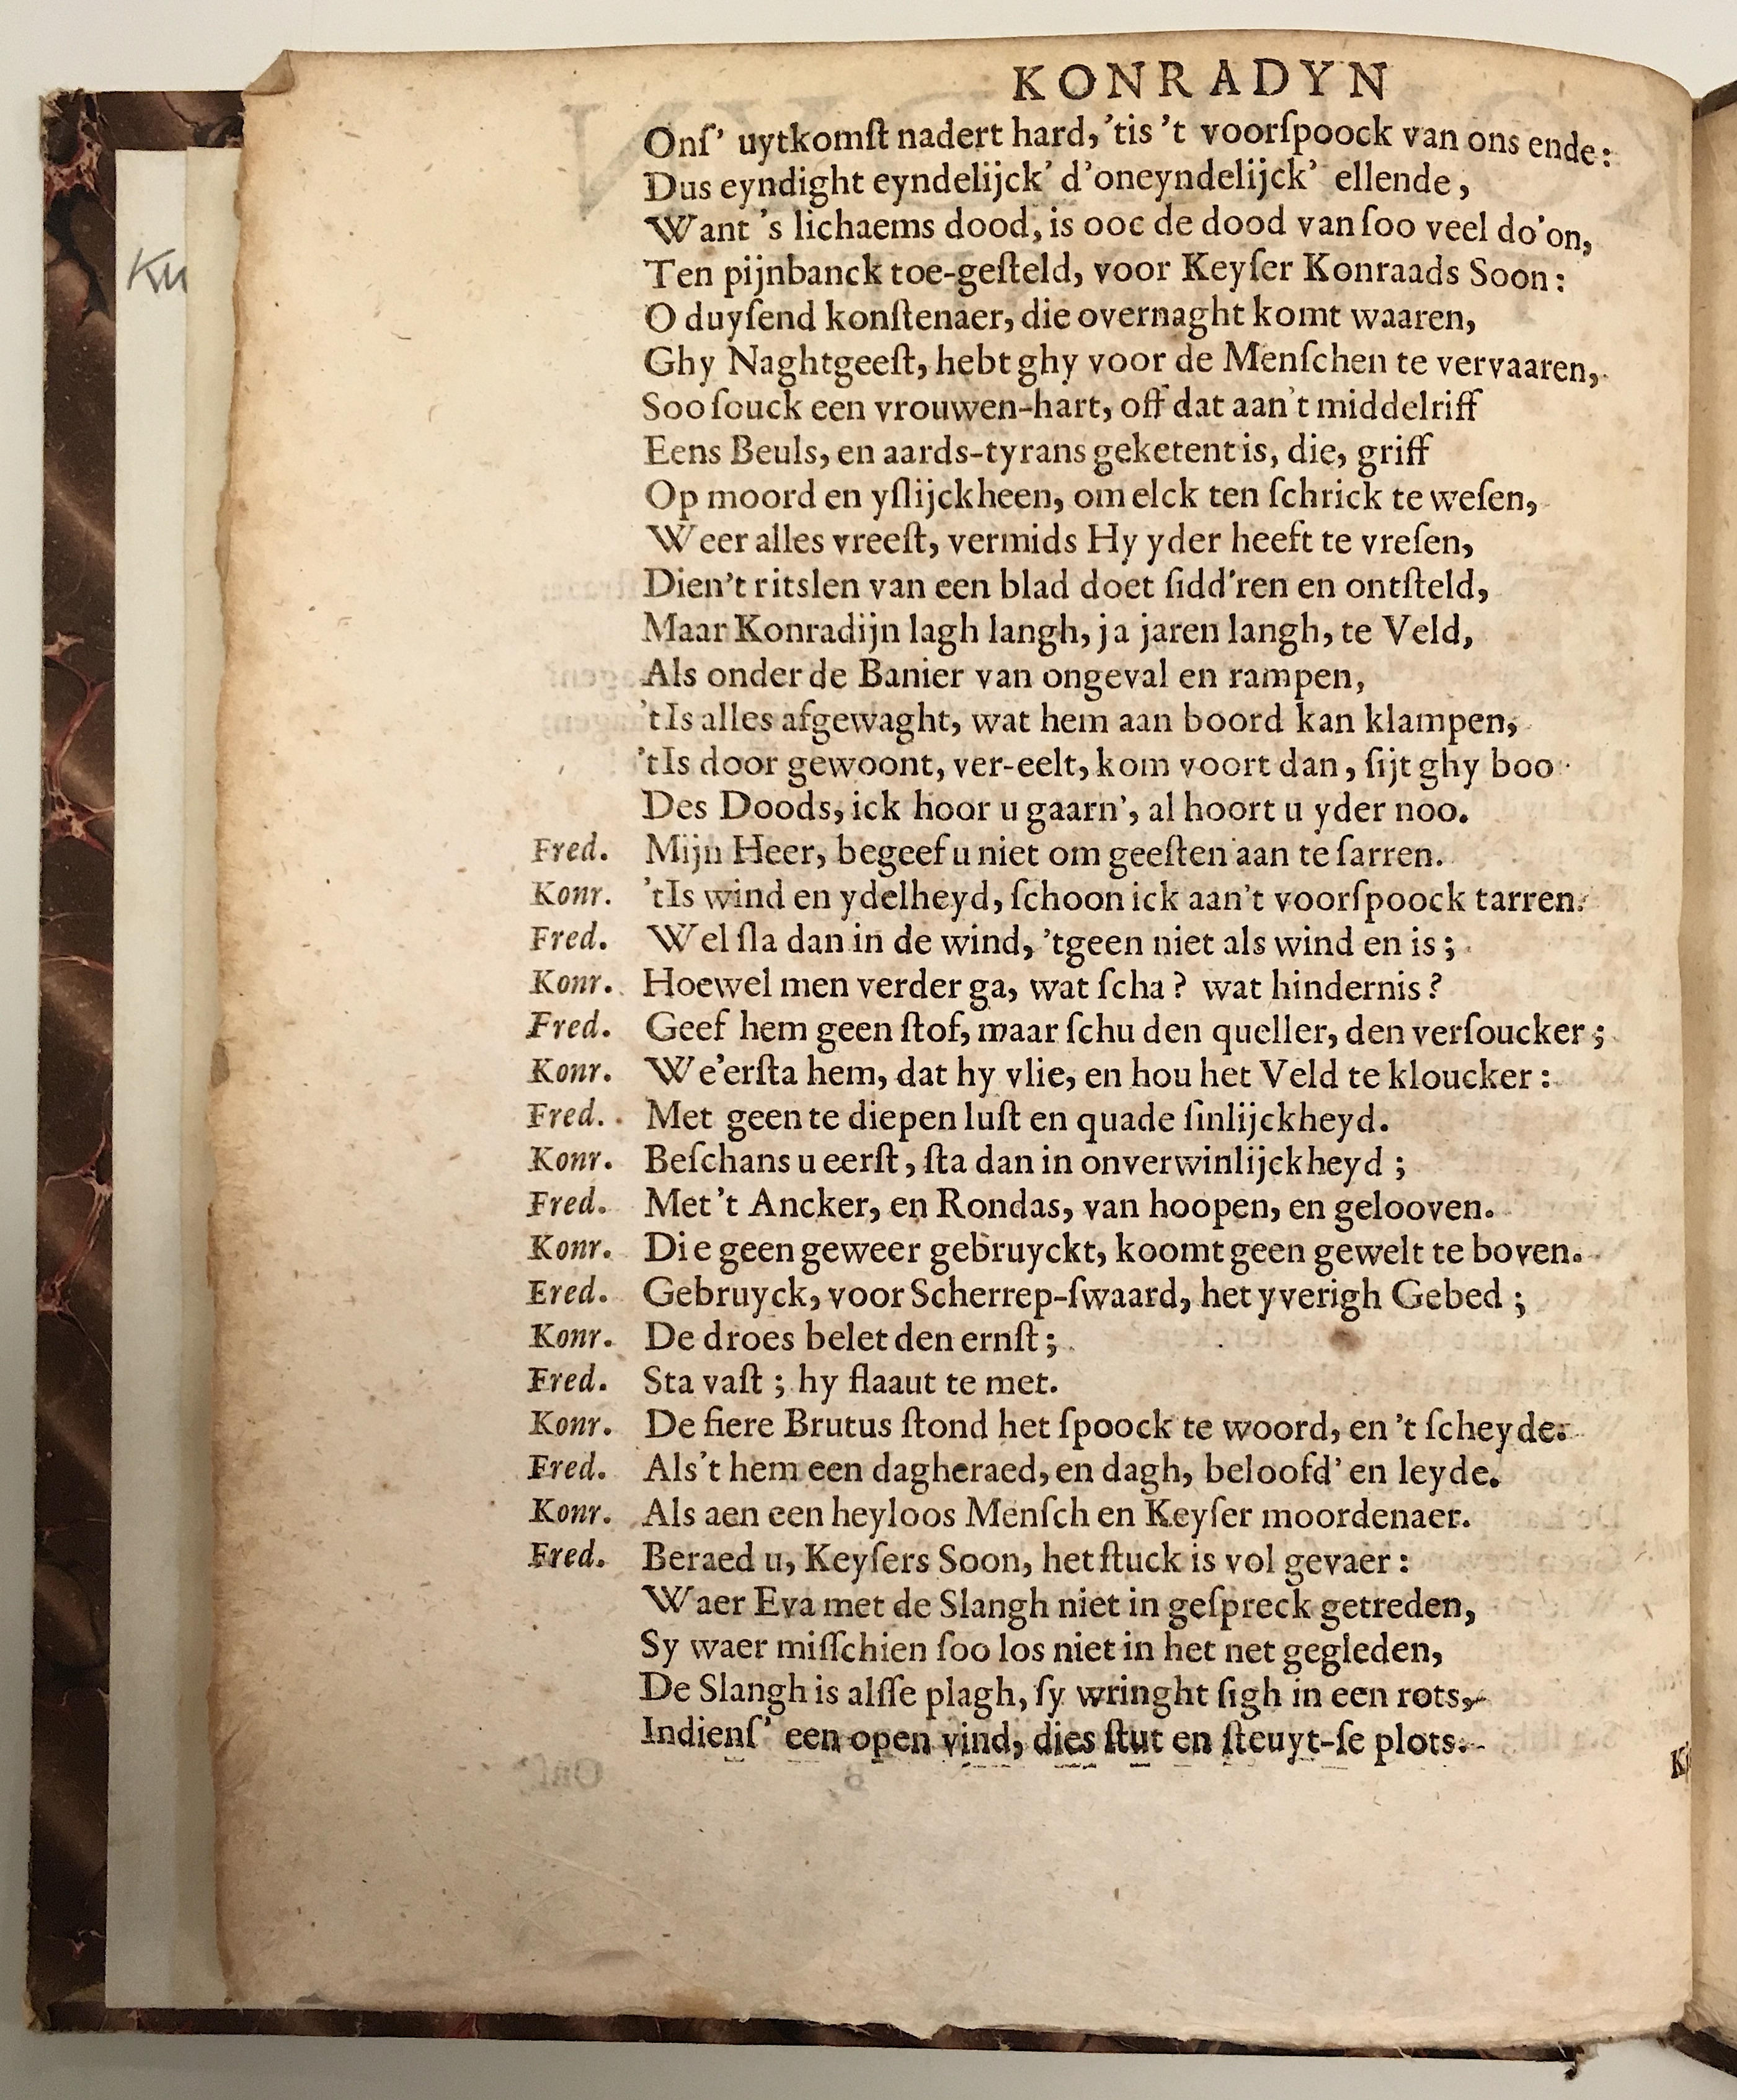 Ku
KONRADYN
Onſ' uytkomſt nadert hard, 'tis 't voorſpoock van ons ende:
Dus eyndight eyndelijck' d'oneyndelijck' ellende,
Want 's lichaems dood, is ooc de dood van ſoo veel do'on,
Ten pijnbanck toe-geſteld, voor Keyſer Konraads Soon:
O duyſend konſtenaer, die overnaght komt waaren,
Ghy Naghtgeeſt, hebt ghy voor de Menſchen te vervaaren,
Soo ſouck een vrouwen-hart, off dat aan't middelriff
Eens Beuls, en aards-tyrans geketent is, die, griff
Op moord en yſlijckheen, om elck ten ſchrick te weſen,
Weer alles vreeſt, vermids Hy yder heeft te vreſen,
Dien't ritslen van een blad doet ſidd'ren en ontſteld,
Maar Konradijn lagh langh, ja jaren langh, te Veld,
Als onder de Banier van ongeval en rampen,
'tIs alles afgewaght, wat hem aan boord kan klampen,
'tIs door gewoont, ver-eelt, kom voort dan, ſijt ghy boo
Des Doods, ick hoor u gaarn', al hoort u yder noo.
Fred. Mijn Heer, begeef u niet om geeſten aan te ſarren.
Konr. 'tIs wind en ydelheyd, ſchoon ick aan't voorſpoock tarren.
Fred. Wel ſla dan in de wind, 'tgeen niet als wind en is;
Konr. Hoewel men verder ga, wat ſcha? wat hindernis?
Fred. Geef hem geen ſtof, maar ſchu den queller, den verſoucker;
Konr. We'erſta hem, dat hy vlie, en hou het Veld te kloucker:
Fred. Met geen te diepen luſt en quade ſinlijckheyd.
Konr. Beſchans u eerſt, ſta dan in onverwinlijckheyd;
Fred. Met 't Ancker, en Rondas, van hoopen, en gelooven.
Konr. Die geen geweer gebruyckt, koomt geen gewelt te boven.
Ered. Gebruyck, voor Scherrep-ſwaard, het yverigh Gebed;
Konr. De droes belet den ernſt;
Fred. Sta vaſt; hy flaaut te met.
Konr. De fiere Brutus ſtond het ſpoock te woord, en 't ſcheyde:
Fred. Als't hem een dagheraed, en dagh, beloofd' en leyde.
Konr. Als aen een heyloos Menſch en Keyſer moordenaer.
Fred. Beraed u, Keyſers Soon, het ſtuck is vol gevaer:
Waer Eva met de Slangh niet in geſpreck getreden,
Sy waer miſſchien ſoo los niet in het net gegleden,
De Slangh is alſſe plagh, ſy wringht ſigh in een rots,
Indienſ' een open vind, dies ſtut en ſteuyt-ſe plots.